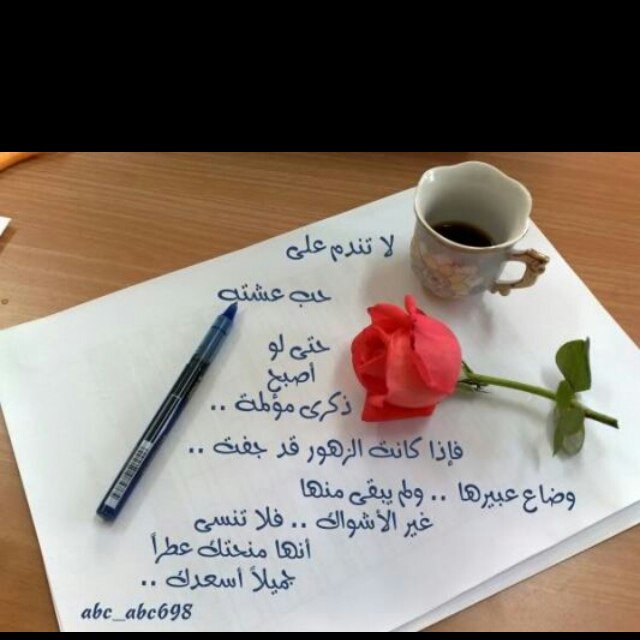 لا تندم على
حب عشته
حتى لو
أصبح
ذكرى مؤلمة ..
فإذا كانت الزهور قد جفت ..
وضاع عبيرها .. ولم يبقى منها
غير الأشواك .. فلا تنسى
أنها منحتك عطراً
جميلاً أسعدك ..
abc_abc698